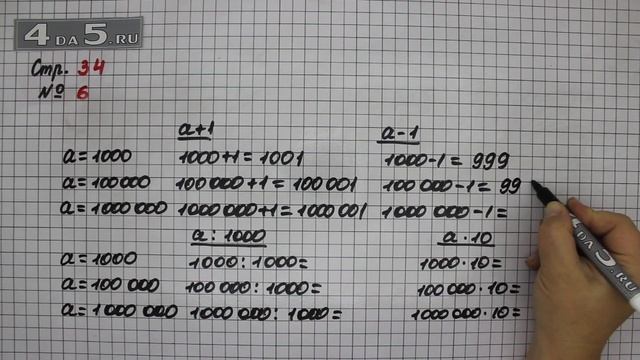 4 DA 5.RU
Стр. 34
№ 6
a+1 a-1
a=1000 1000+1=1001 1000-1=999
a=100000 100 000+1=100 001 100 000-1=99
a=1000 000 1000 000+1=1000 001 1000 000-1=
a:1000 a·10
a=1000 1000:1000= 1000·10=
a=100 000 100 000:1000= 100 000·10=
a=1 000 000 1000 000:1000= 1000 000·10=
4 DA 5.RU